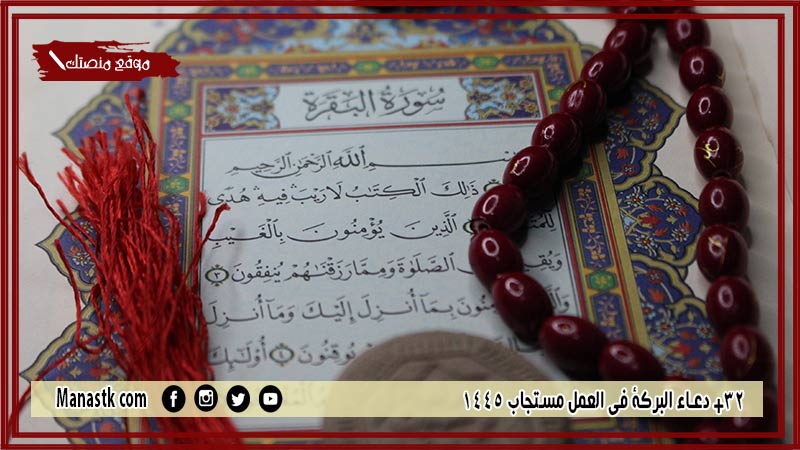 موقع منصتك
سُورَةُ البَقَرَةِ
بِسْمِ اللَّهِ الرَّحْمَٰنِ الرَّحِيمِ
ذَٰلِكَ الْكِتَٰبُ لَا رَيْبَ فِيهِ هُدًى
الَّذِينَ يُؤْمِنُونَ بِالْغَيْبِ
الصَّلَوٰةَ وَمِمَّا رَزَقْنَٰهُمْ يُنفِقُونَ ٣
بِمَآ أُنزِلَ إِلَيْكَ وَمَآ أُنزِلَ
يُوقِنُونَ ٤ أُوْلَٰٓئِكَ
+٣٢ دعاء البركة في العمل مستجاب ١٤٤٥
Manastk com